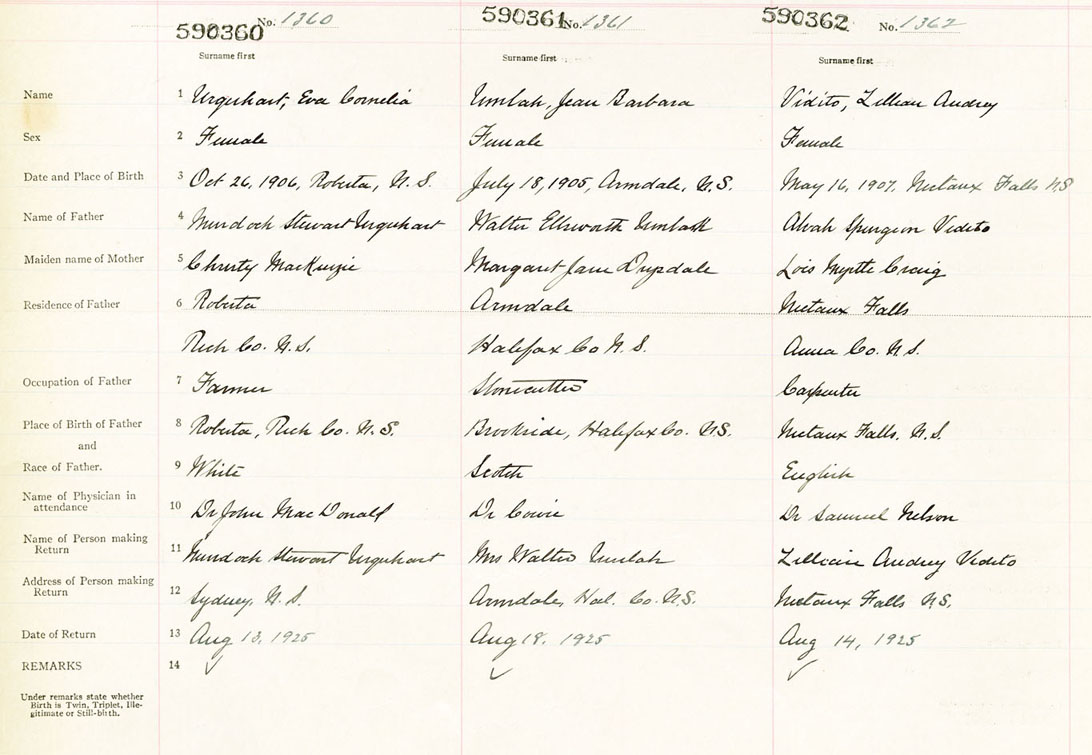 590360 No. 1360 590361 No. 1361 590362 No. 1362
Surname first Surname first Surname first
Name 1 Urquhart, Eva Cornelia Umlah, Jean Barbara Vidito, Lillian Audrey
Sex 2 Female Female Female
Date and Place of Birth 3 Oct 26, 1906, Roberta, N.S. July 18, 1905, Armdale, N.S. May 16, 1907. Nictaux Falls N.S
Name of Father 4 Murdoch Stewart Urquhart Walter Ellsworth Umlah Alvah Spurgeon Vidito
Maiden name of Mother 5 Christy MacKenzie Margaret Jane Drysdale Lois Myrtle Craig
Residence of Father 6 Roberta Armdale Nictaux Falls
Rich Co. N.S. Halifax Co N.S. Anna Co. N.S.
Occupation of Father 7 Farmer Stonecutter Carpenter
Place of Birth of Father 8 Roberta, Rich Co. N.S. Brookside, Halifax Co. N.S. Nictaux Falls, N.S.
and
Race of Father. 9 White Scotch English
Name of Physician in
attendance 10 Dr John MacDonald Dr Cowie Dr Samuel Nelson
Name of Person making
Return 11 Murdoch Stewart Urquhart Mrs Walter Umlah Lillian Audrey Vidito
Address of Person making
Return 12 Sydney, N.S. Armdale, Hal. Co. N.S. Nictaux Falls N.S.
Date of Return 13 Aug 13, 1925 Aug 18. 1925 Aug 14, 1925
REMARKS 14 ✓ ✓ ✓
Under remarks state whether
Birth is Twin, Triplet, Ille-
gitimate or Still-birth.